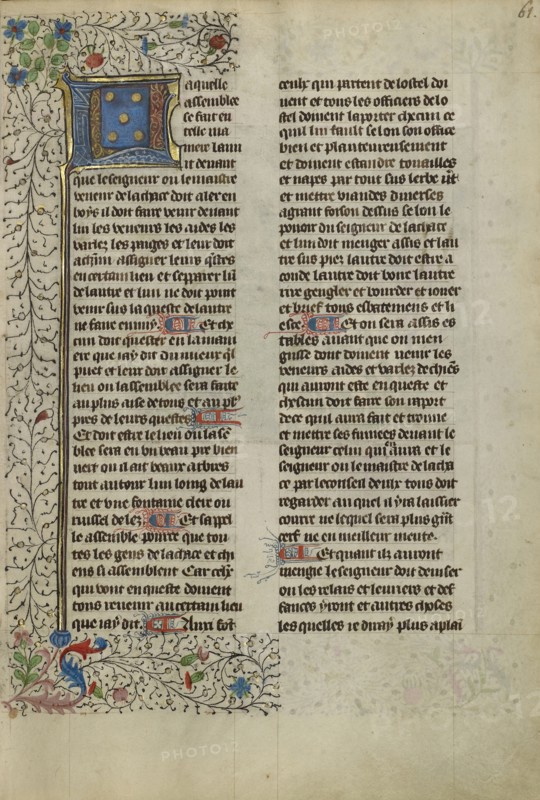 61.
Laquelle
assemblee
se fait en
telle ma
niere La nu
it devant
que le seigneur ou le maistre
veneur de la chace doit aler en
boys il doit faire venir devant
lui les veneurs les aides les
varlez les paiges et leur doit
assigner leurs questes
en certain lieu et separer lun
de lautre et lun ne doit point
venir sus la queste de lautre
ne faire ennuy. Et chas
cun doit quester en la mani
ere que jay dit du mieux quil
puet et leur doit assigner le
lieu ou lassemblee sera faite
au plus aise de tous et au plus
pres de leurs questes
Et doit estre le lieu ou lase
blee sera en un beau pre bien
vert ou il ait beaux arbres
tout autour lun loing de lau
tre et une fontaine clere ou
russel de lez Et sappel
le assemble pource que tou
tes les gens de la chace et chi
ens si assemblent Car ceulx
qui vont en queste doivent
tous revenir au certain lieu
que jay dit. Aussi font
ceulx qui partent de lostel doi
vent et tous les officiers de lo
stel doivent laporter chacun ce
quil lui fault selon son office
bien et planteureusement
et doivent estandre touailles
et napes par tout sus lerbe vert
et mettre viandes diverses
a grant foison dessus selon le
pouoir du seigneur de la chace
et lun doit menger assis et lau
tre sus piez lautre doit estre a
coude lautre doit boire lautre
rire gengler et bourder et jouer
et brief tous esbatemens et li
esce Et on sera assis es
tables avant que on men
gusse dont doivent venir les
veneurs aides et varlez de chiens
qui auront este en queste et
chescun doit faire son raport
de ce quil aura fait et trouve
et mettre ses fumees devant le
seigneur celui qui aura et le
seigneur ou le maistre de la cha
ce par le conseil deulx tous doit
regarder au quel il yra laissier
courre ne lequel sera plus grant
cerf ne en meilleur meute.
Et quant ilz auront
mengie le seigneur doit deviser
ou les relais et levriers et def
fances yront et autres choses
les quelles je diray plus a plain